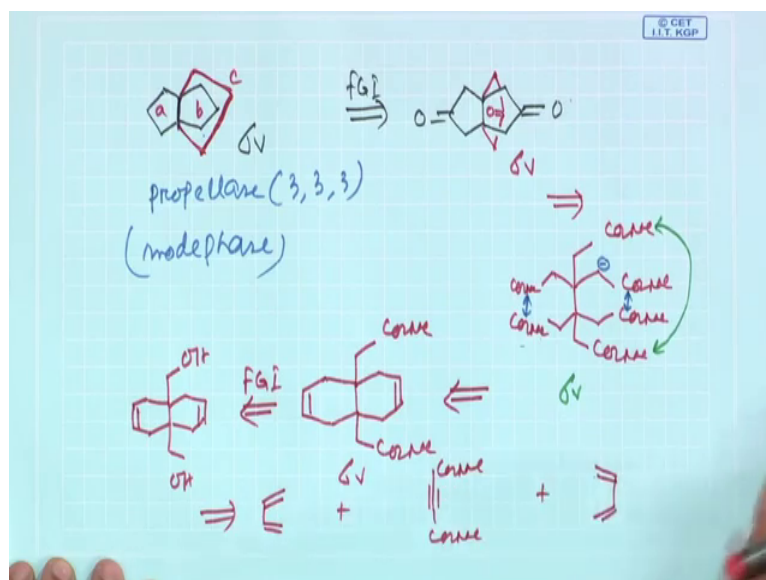 © CET
I.I.T. KGP
a b c
σv
FGI
O O O
σv
propellase (3,3,3)
(modephase)
CO₂Me
⊖
CO₂Me CO₂Me
CO₂Me CO₂Me
CO₂Me
σv
OH
FGI
CO₂Me
CO₂Me
σv
OH
CO₂Me
+ +
CO₂Me